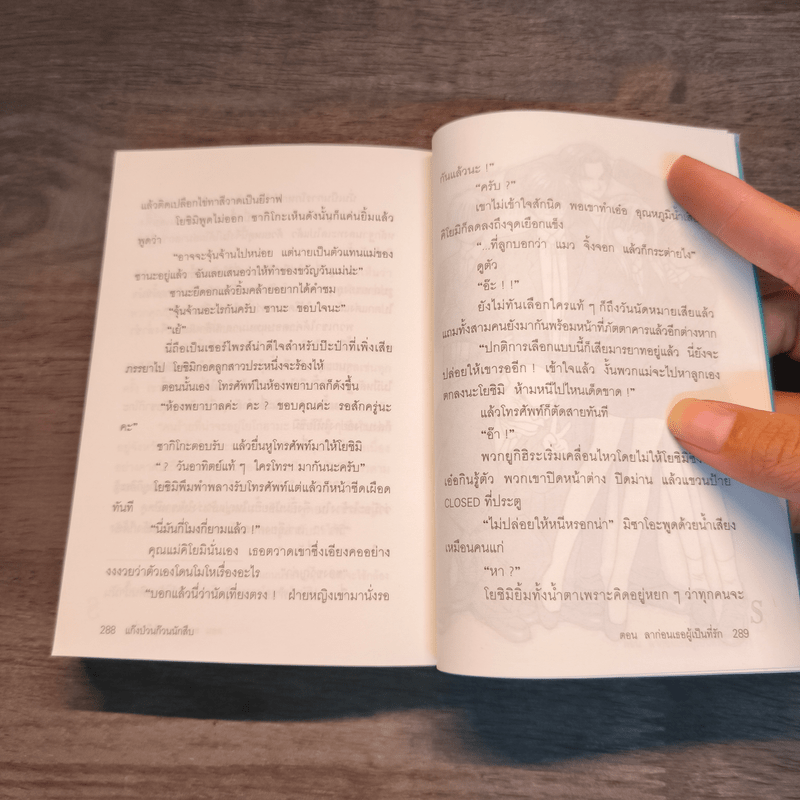 แล้วติดเปลือกไข่ทาสีวาดเป็นยีราฟ
โยชิมิพูดไม่ออก ซากิโกะเห็นดังนั้นก็แค่นยิ้มแล้ว
พูดว่า
“อาจจะจุ้นจ้านไปหน่อย แต่นายเป็นตัวแทนแม่ของ
ซานะอยู่แล้ว ฉันเลยเสนอว่าให้ทำของขวัญวันแม่น่ะ”
ซานะยืดอกแล้วยิ้มคล้ายอยากได้คำชม
“จุ้นจ้านอะไรกันครับ ซานะ ขอบใจนะ”
“เย้”
นี่ถือเป็นเซอร์ไพรส์น่าดีใจสำหรับป๊ะป๋าที่เพิ่งเสีย
ภรรยาไป โยชิมิกอดลูกสาวประหนึ่งจะร้องไห้
ตอนนั้นเอง โทรศัพท์ในห้องพยาบาลก็ดังขึ้น
“ห้องพยาบาลค่ะ คะ ? ขอบคุณค่ะ รอสักครู่นะ
คะ”
ซากิโกะตอบรับ แล้วยื่นหูโทรศัพท์มาให้โยชิมิ
“ ? วันอาทิตย์แท้ ๆ ใครโทรฯ มากันนะครับ”
โยชิมิพึมพำพลางรับโทรศัพท์แต่แล้วก็หน้าซีดเผือด
ทันที
“นี่มันกี่โมงกี่ยามแล้ว !”
คุณแม่คิโยมินั่นเอง เธอตวาดเขาซึ่งเอียงคออย่าง
งงงวยว่าตัวเองโดนโมโหเรื่องอะไร
“บอกแล้วนี่ว่านัดเที่ยงตรง ! ฝ่ายหญิงเขามานั่งรอ
288 แก๊งป่วนก๊วนนักสืบ
กันแล้วนะ !”
“ครับ ?”
เขาไม่เข้าใจสักนิด พอเขาทำเอ๋อ อุณหภูมิน้ำ
คิโยมิก็ลดลงถึงจุดเยือกแข็ง
“...ที่ลูกบอกว่า แมว จิ้งจอก แล้วก็กระต่ายไง”
ดูตัว
“อ๊ะ ! !”
ยังไม่ทันเลือกใครแท้ ๆ ก็ถึงวันนัดหมายเสียแล้ว
แถมทั้งสามคนยังมากันพร้อมหน้าที่ภัตตาคารแล้วอีกต่างหาก
“ปกติการเลือกแบบนี้ก็เสียมารยาทอยู่แล้ว นี่ยังจะ
ปล่อยให้เขารออีก ! เข้าใจแล้ว งั้นพวกแม่จะไปหาลูกเอง
ตกลงนะโยชิมิ ห้ามหนีไปไหนเด็ดขาด !”
แล้วโทรศัพท์ก็ตัดสายทันที
“อ๊า !”
พวกยูกิฮิระเริ่มเคลื่อนไหวโดยไม่ให้โยชิมิ
เอ๋อกินรู้ตัว พวกเขาปิดหน้าต่าง ปิดม่าน แล้วแขวนป้าย
CLOSED ที่ประตู
“ไม่ปล่อยให้หนีหรอกน่า” มิซาโอะพูดด้วยน้ำเสียง
เหมือนคนแก่
“หา ?”
โยชิมิยิ้มทั้งน้ำตาเพราะคิดอยู่หยก ๆ ว่าทุกคนจะ
ตอน ลาก่อนเธอผู้เป็นที่รัก 289